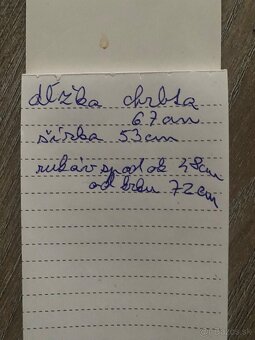 dĺžka chrbta
67cm
šírka 53cm
rukáv spodok 48cm
od krku 72cm